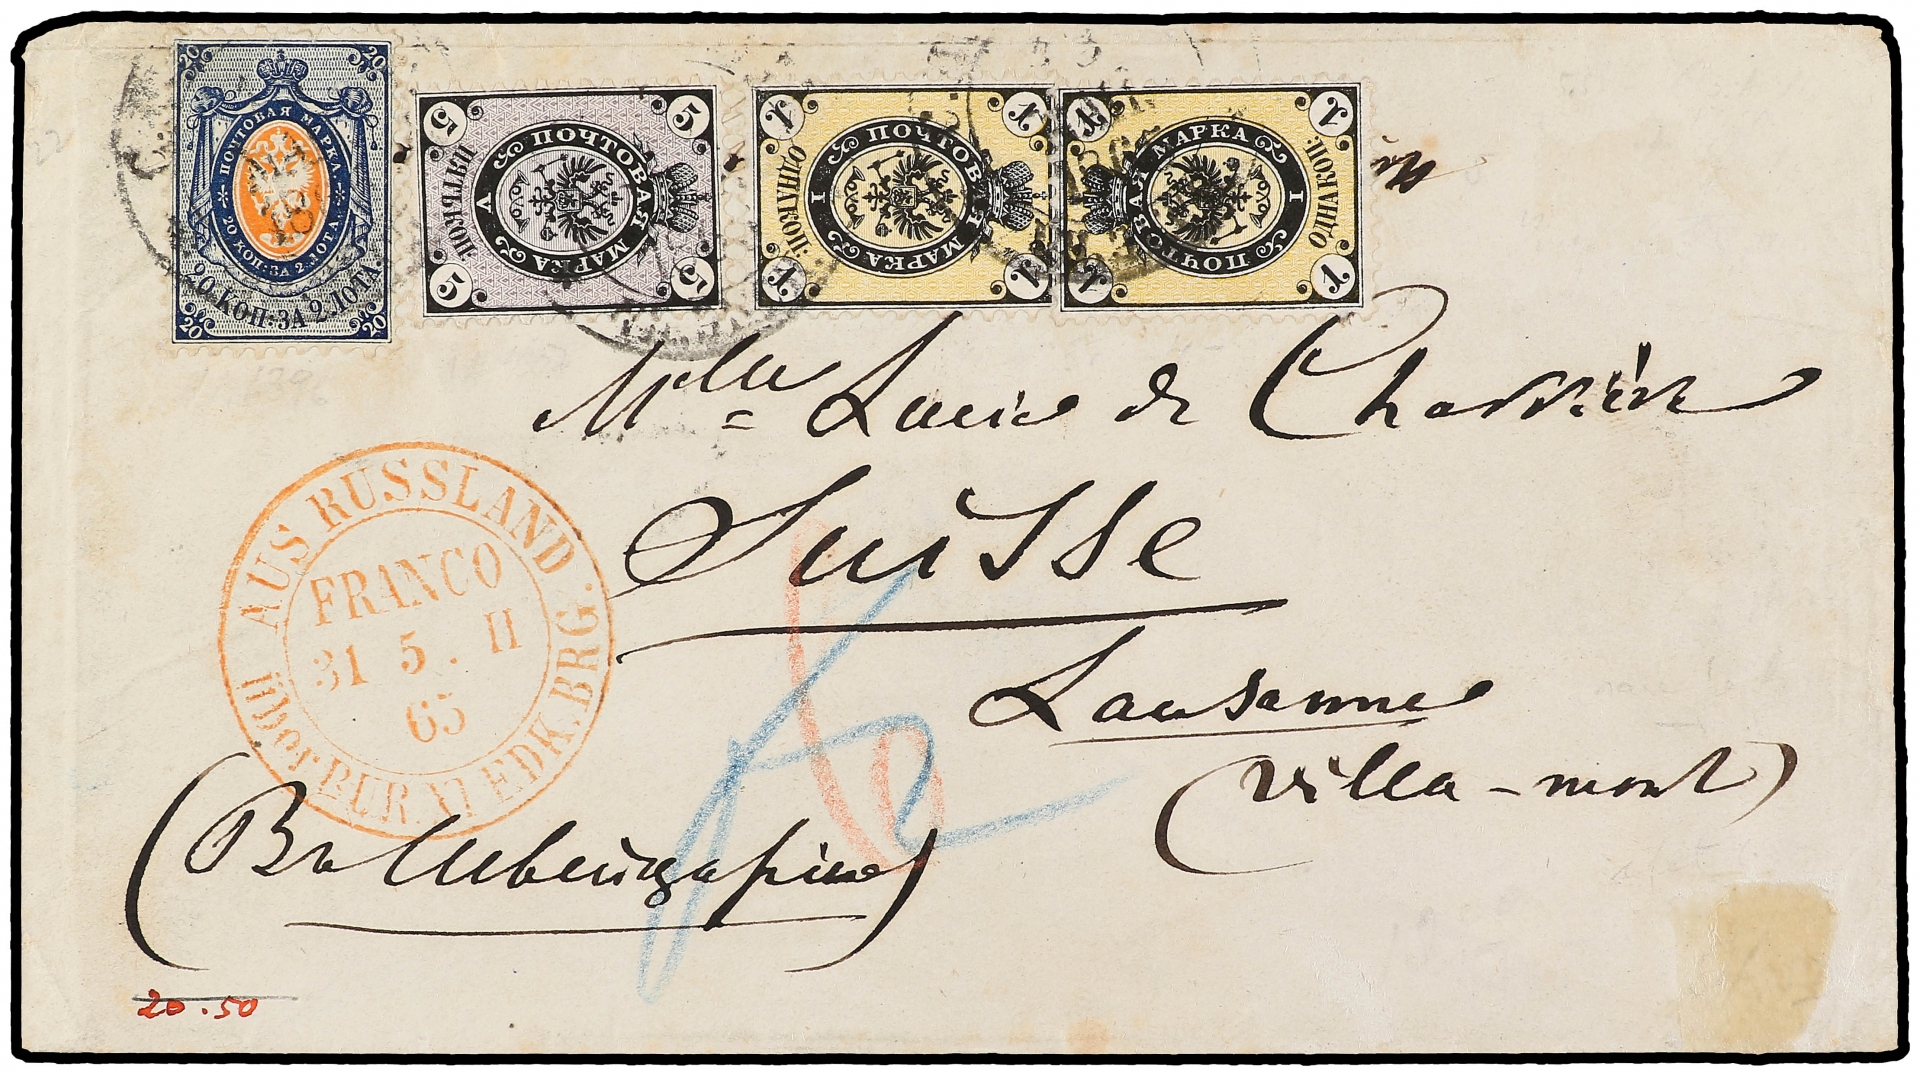 20 20
ПОЧТОВАЯ МАРКА
20 КОП: ЗА 2 ЛОТА
20 КОП: ЗА 2 ЛОТА
20 20
5 5
ПОЧТОВАЯ МАРКА
V
ПЯТЬКОП:
5 5
1 1
ПОЧТОВАЯ МАРКА
I
ОДНАКОП:
1 1
1 1
ПОЧТОВАЯ МАРКА
I
ОДНАКОП:
1 1
Mlle Lucie de Charrière
Suisse
Lausanne
(Villa-mont)
AUS RUSSLAND
FRANCO
31 5. II
65
über EDK. BRG.
(Въ Швейцарiю)
20.50